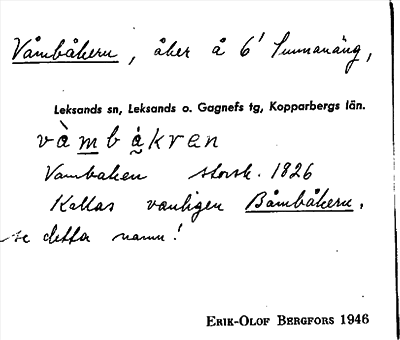 Våmbåkern, åker å 6' Sunnanäng,
Leksands sn, Leksands o. Gagnefs tg, Kopparbergs län.
và̀mbå̀kren
Vambaken storsk. 1826
Kallas vanligen Båmbåkern,
se detta namn!
ERIK-OLOF BERGFORS 1946